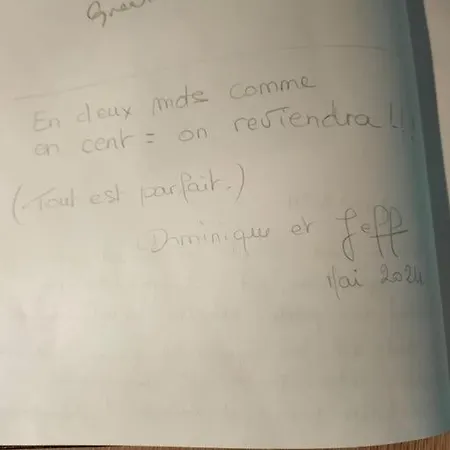 En deux mots comme
en cent = on reviendra !!!
(Tout est parfait.)
Dominique et Jeff
Mai 2024